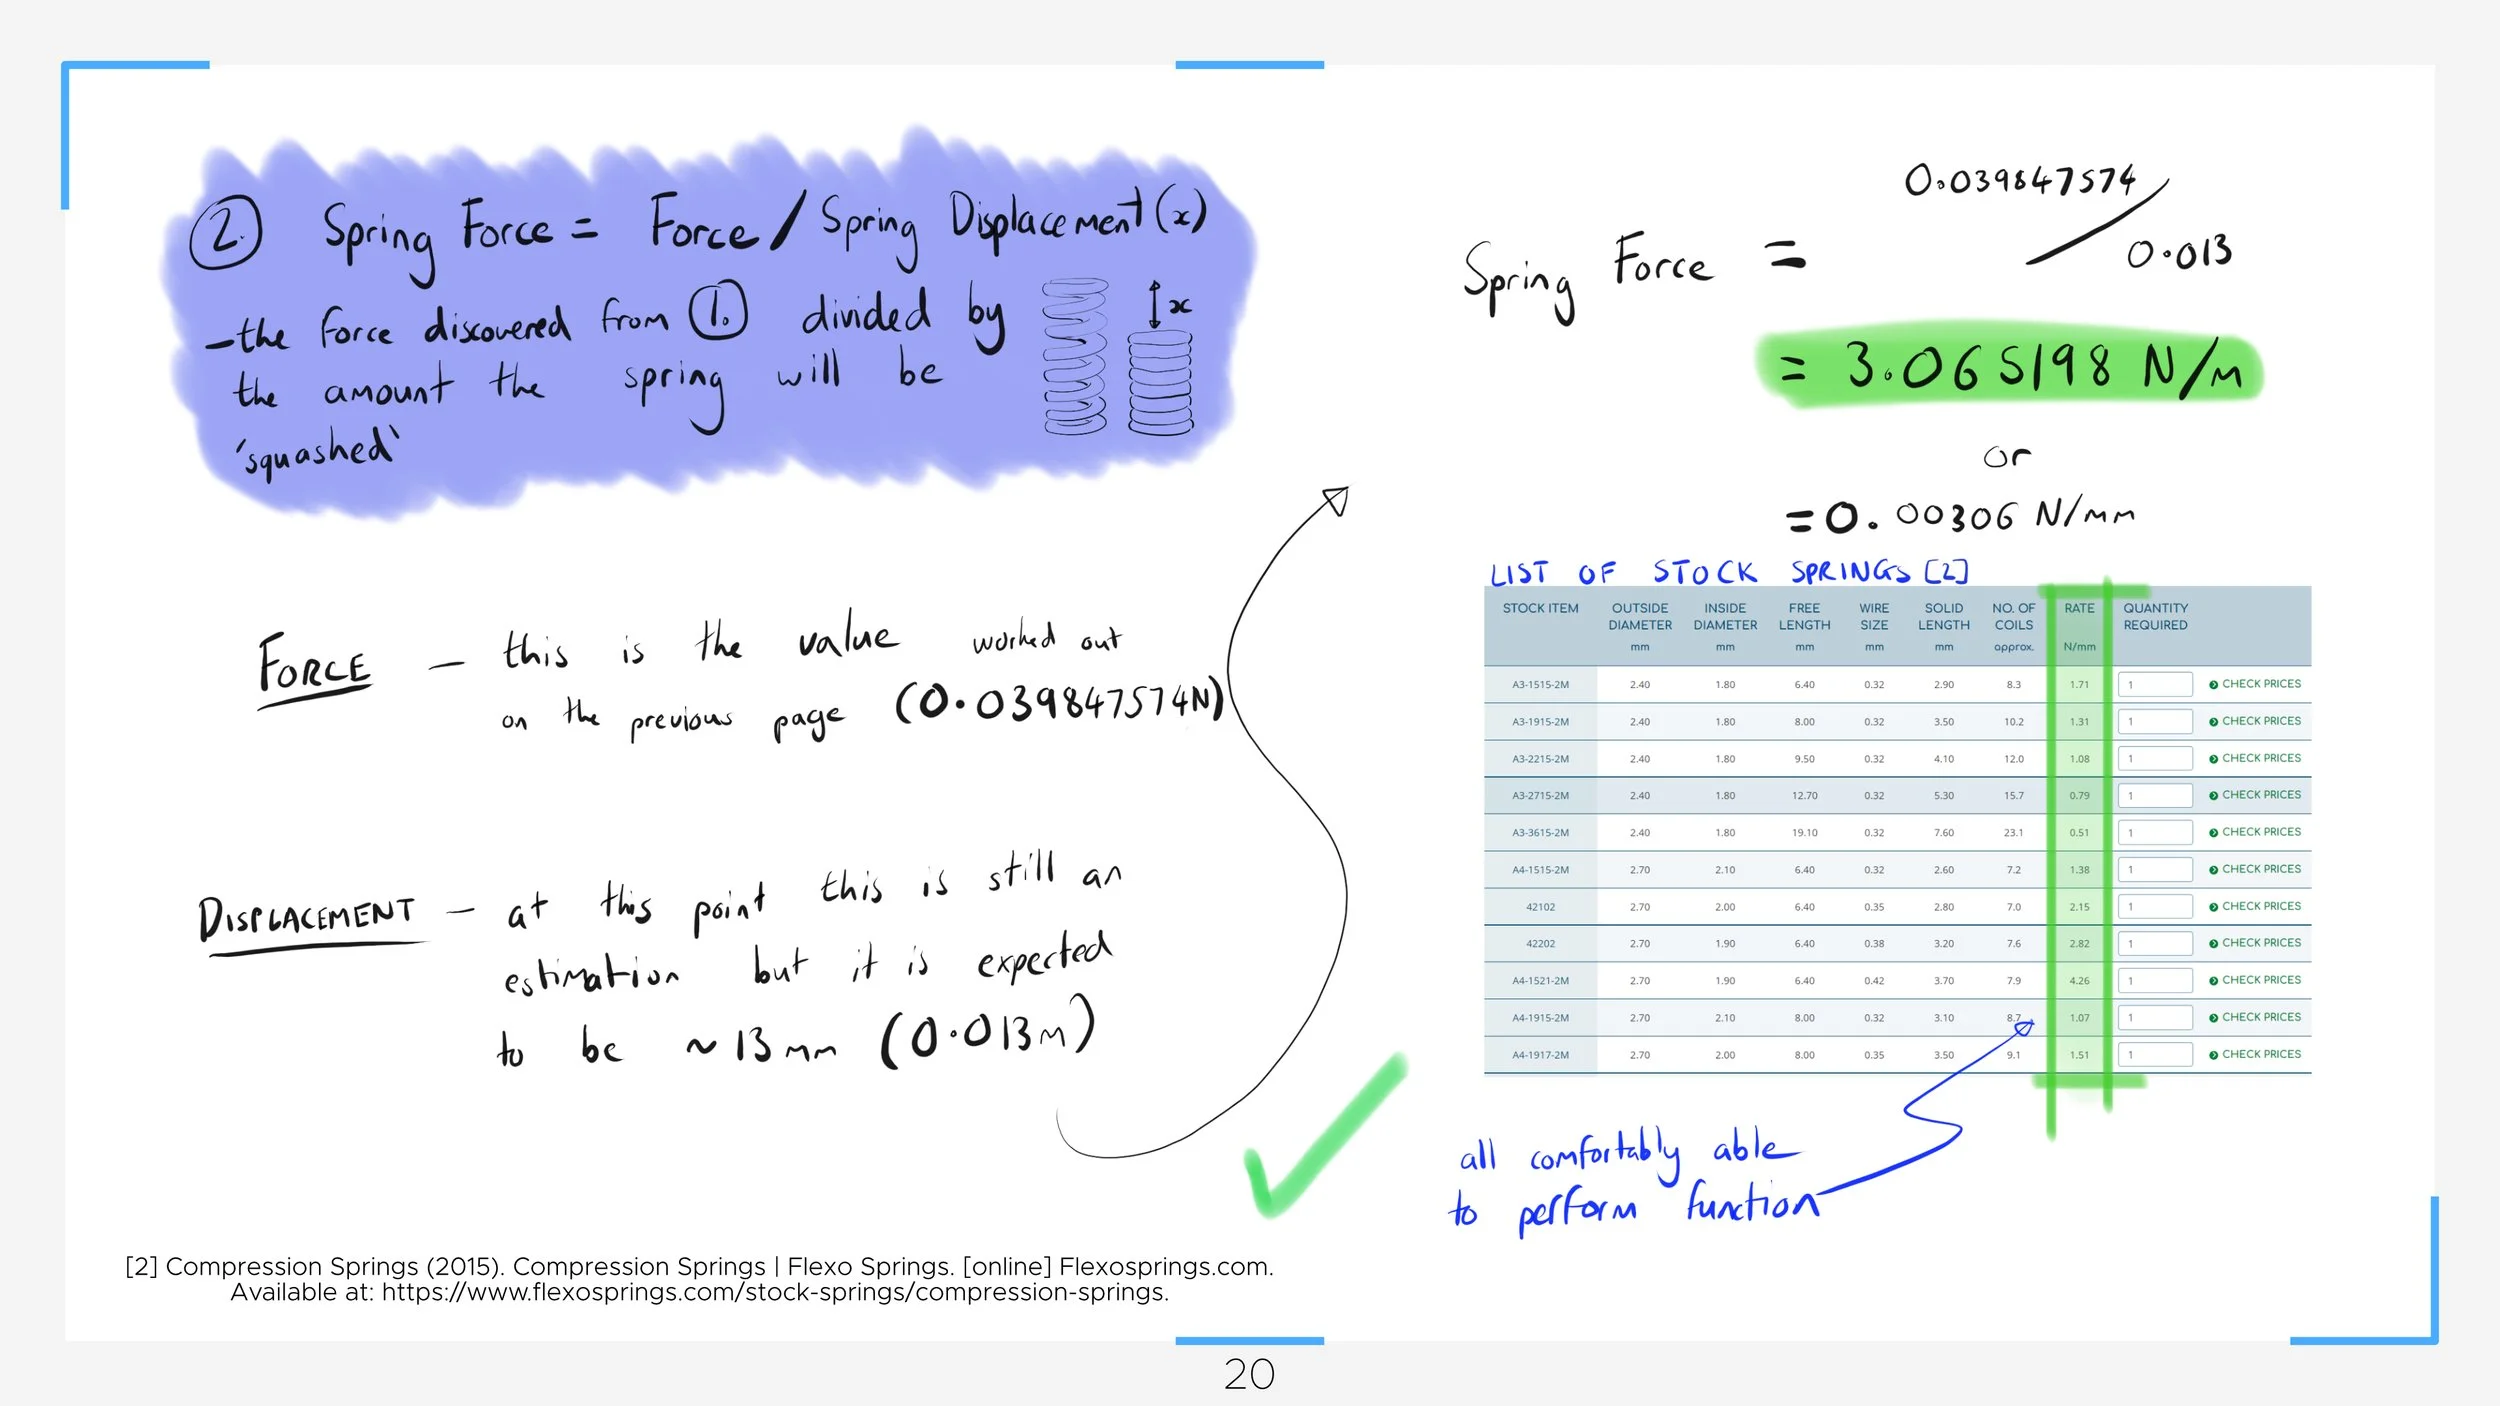 2. Spring Force = Force / Spring Displacement (x)
- the force discovered from 1. divided by
the amount the spring will be
'squashed'
x
FORCE - this is the value worked out
on the previous page (0.039847574N)
DISPLACEMENT - at this point this is still an
estimation but it is expected
to be ~13mm (0.013m)
Spring Force = 0.039847574 / 0.013
= 3.065198 N/m
or
= 0.00306 N/mm
LIST OF STOCK SPRINGS [2]
STOCK ITEM OUTSIDE DIAMETER mm INSIDE DIAMETER mm FREE LENGTH mm WIRE SIZE mm SOLID LENGTH mm NO. OF COILS approx. RATE N/mm QUANTITY REQUIRED
A3-1515-2M 2.40 1.80 6.40 0.32 2.90 8.3 1.71 1 CHECK PRICES
A3-1915-2M 2.40 1.80 8.00 0.32 3.50 10.2 1.31 1 CHECK PRICES
A3-2215-2M 2.40 1.80 9.50 0.32 4.10 12.0 1.08 1 CHECK PRICES
A3-2715-2M 2.40 1.80 12.70 0.32 5.30 15.7 0.79 1 CHECK PRICES
A3-3615-2M 2.40 1.80 19.10 0.32 7.60 23.1 0.51 1 CHECK PRICES
A4-1515-2M 2.70 2.10 6.40 0.32 2.60 7.2 1.38 1 CHECK PRICES
42102 2.70 2.00 6.40 0.35 2.80 7.0 2.15 1 CHECK PRICES
42202 2.70 1.90 6.40 0.38 3.20 7.6 2.82 1 CHECK PRICES
A4-1521-2M 2.70 1.90 6.40 0.42 3.70 7.9 4.26 1 CHECK PRICES
A4-1915-2M 2.70 2.10 8.00 0.32 3.10 8.7 1.07 1 CHECK PRICES
A4-1917-2M 2.70 2.00 8.00 0.35 3.50 9.1 1.51 1 CHECK PRICES
all comfortably able
to perform function
[2] Compression Springs (2015). Compression Springs | Flexo Springs. [online] Flexosprings.com.
Available at: https://www.flexosprings.com/stock-springs/compression-springs.
20